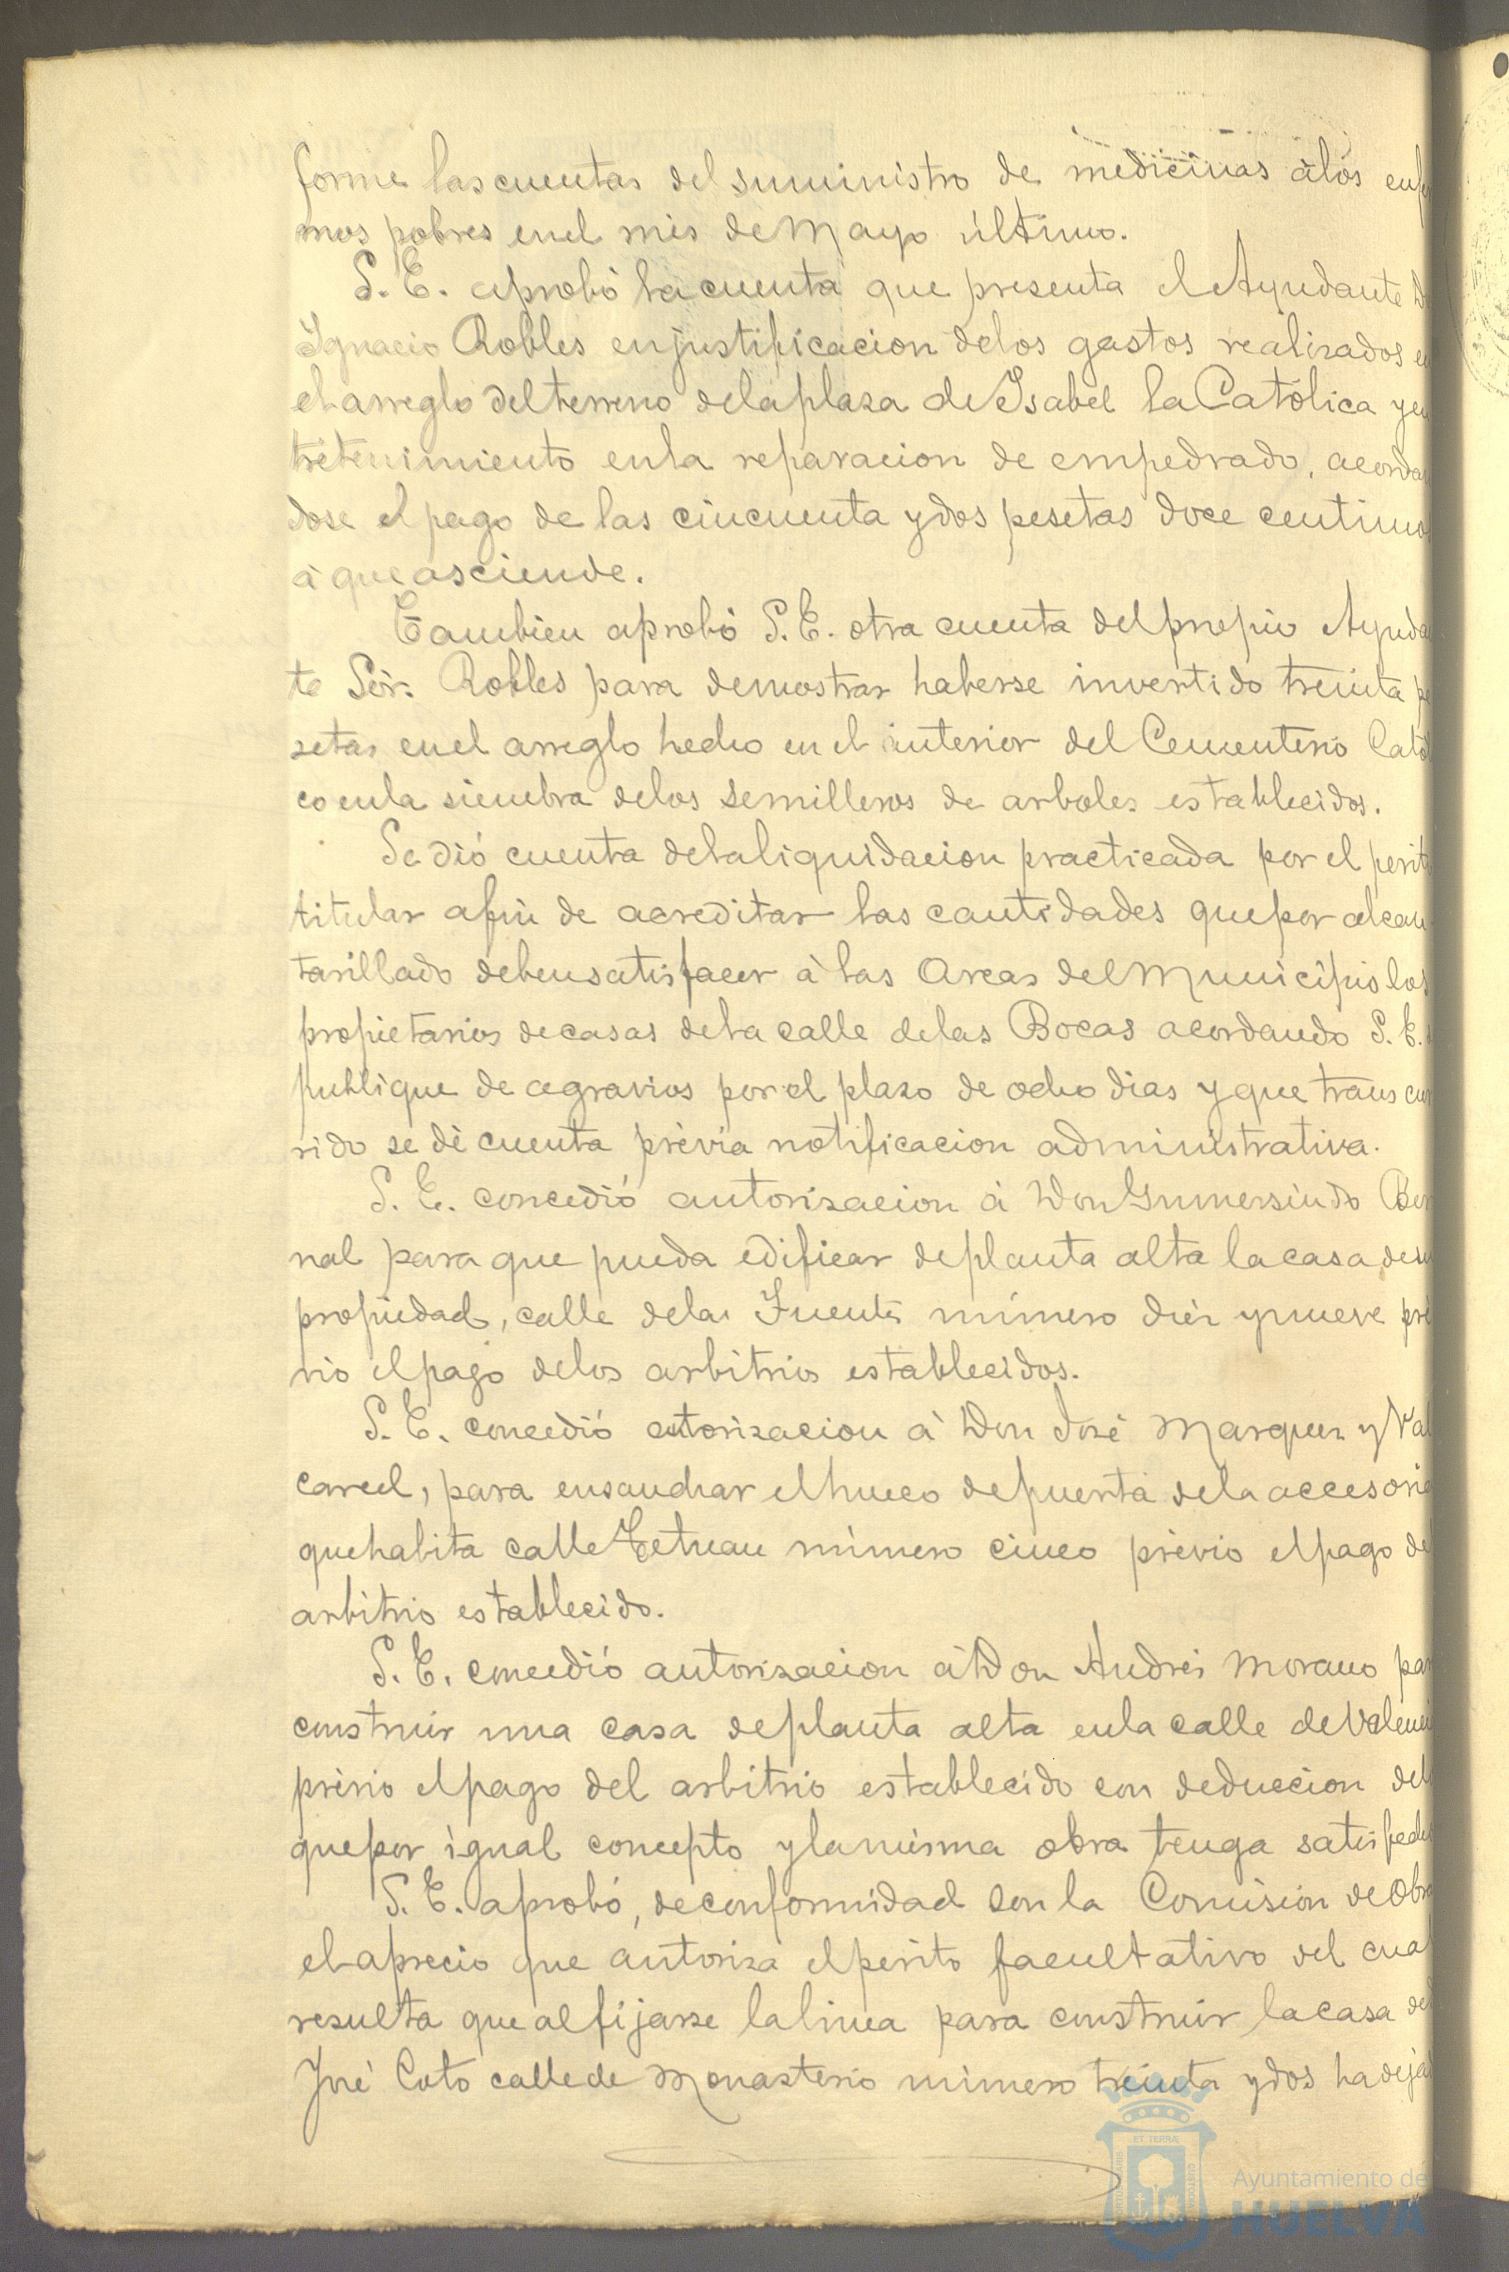 forme las cuentas del suministro de medicinas á los enfer
mos pobres en el mes de Mayo último.
S. E. aprobó la cuenta que presenta el Ayudante D
Ignacio Robles en justificacion de los gastos realizados en
el arreglo del terreno de la plaza de Isabel la Católica y en
tretenimiento en la reparacion de empedrado, acordan
dose el pago de las cincuenta y dos pesetas doce centimos
á que asciende.
Tambien aprobó S. E. otra cuenta del propio Ayudan
te Sór. Robles para demostrar haberse invertido treinta pe
setas en el arreglo hecho en el interior del Cementerio Catól
co en la siembra de los semilleros de arboles establecidos.
Se dió cuenta de la liquidacion practicada por el perito
titular afin de acreditar las cantidades que por alcan
tarillado deben satisfacer á las Arcas del Municipio los
propietarios de casas de la calle de las Bocas acordando S. E.
publique de agravios por el plazo de ocho dias y que trans cur
rido se dé cuenta prévia notificacion administrativa.
S. E. concedió autorizacion á Don Gumersindo Ber
nal para que pueda edificar de planta alta la casa de su
propiedad, calle de la Fuente número diez y nueve pré
vio el pago de los arbitrios establecidos.
S. E. concedió autorizacion á Don José Marquez y Val
carcel, para ensanchar el hueco de puerta de la accesoria
que habita calle Tetuan número cinco prévio el pago del
arbitrio establecido.
S. E. concedió autorizacion á Don Andrés Morano par
construir una casa de planta alta en la calle de Valenci
prévio el pago del arbitrio establecido con deduccion del
que por igual concepto y la misma obra tenga satisfecho
S. E. aprobó, de conformidad con la Comision de Obra
el aprecio que autoriza el perito facultativo del cual
resulta que al fijarse la linea para construir la casa de
José Coto calle de Monasterio número treinta y dos ha dejad
Ayuntamiento de
HUELVA